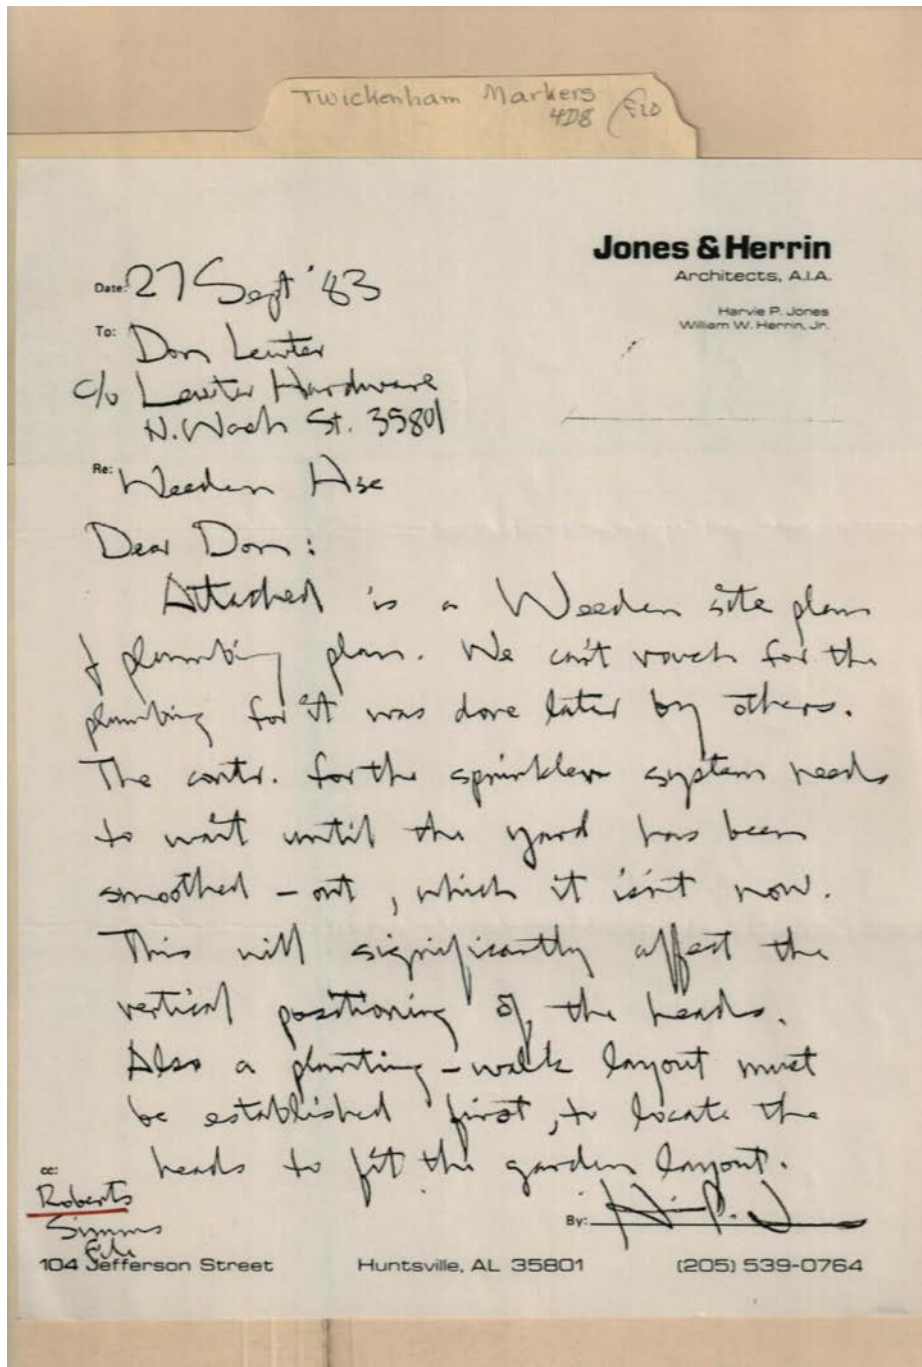 Twickenham Markers
4D8
Jones & Herrin
Architects, A.I.A.
Harvie P. Jones
William W. Herrin, Jr.
Date: 27 Sept '83
To: Don Lewter
c/o Lewter Hardware
N. Wash St. 35801
Re: Weeden Hse
Dear Don:
Attached is a Weeden site plan
& plumbing plan. We can't vouch for the
plumbing for it was done later by others.
The contr. for the sprinkler system needs
to wait until the yard has been
smoothed-out, which it isn't now.
This will significantly affect the
vertical positioning of the heads.
Also a planting-walk layout must
be established first, to locate the
heads to fit the garden layout.
cc:
Roberts
Simms
File
By:
104 Jefferson Street Huntsville, AL 35801 (205) 539-0764